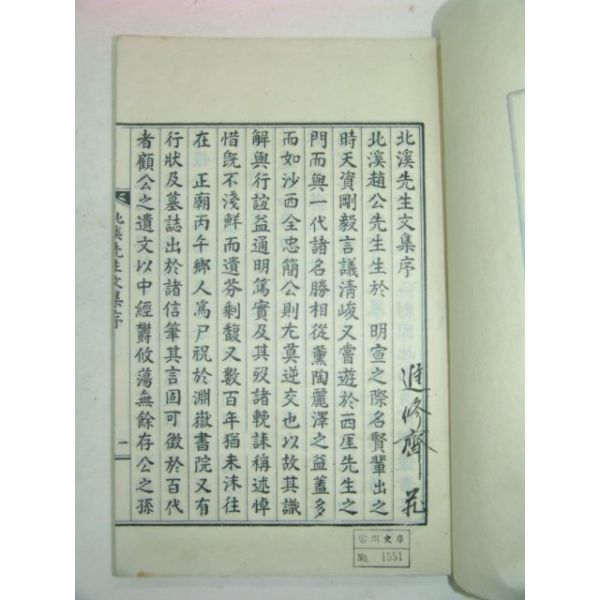 北溪先生文集序
北溪趙公先生生於 明宣之際名賢輩出之
時天資剛毅言議淸峻又嘗遊於西厓先生之
門而與一代諸名勝相從薰陶麗澤之益蓋多
而如沙西全忠簡公則尤莫逆交也以故其識
解與行誼益通明篤實及其歿諸輓誄稱述悼
惜旣不淺鮮而遺芬剩馥又數百年猶未沫往
在 正廟丙午鄕人爲尸祝於淵嶽書院又有
行狀及墓誌出於諸信筆其言固可徵於百代
者顧公之遺文以中經鬱攸蕩無餘存公之孫
北溪先生文集序
一
進修齊
文庫
No. 1551